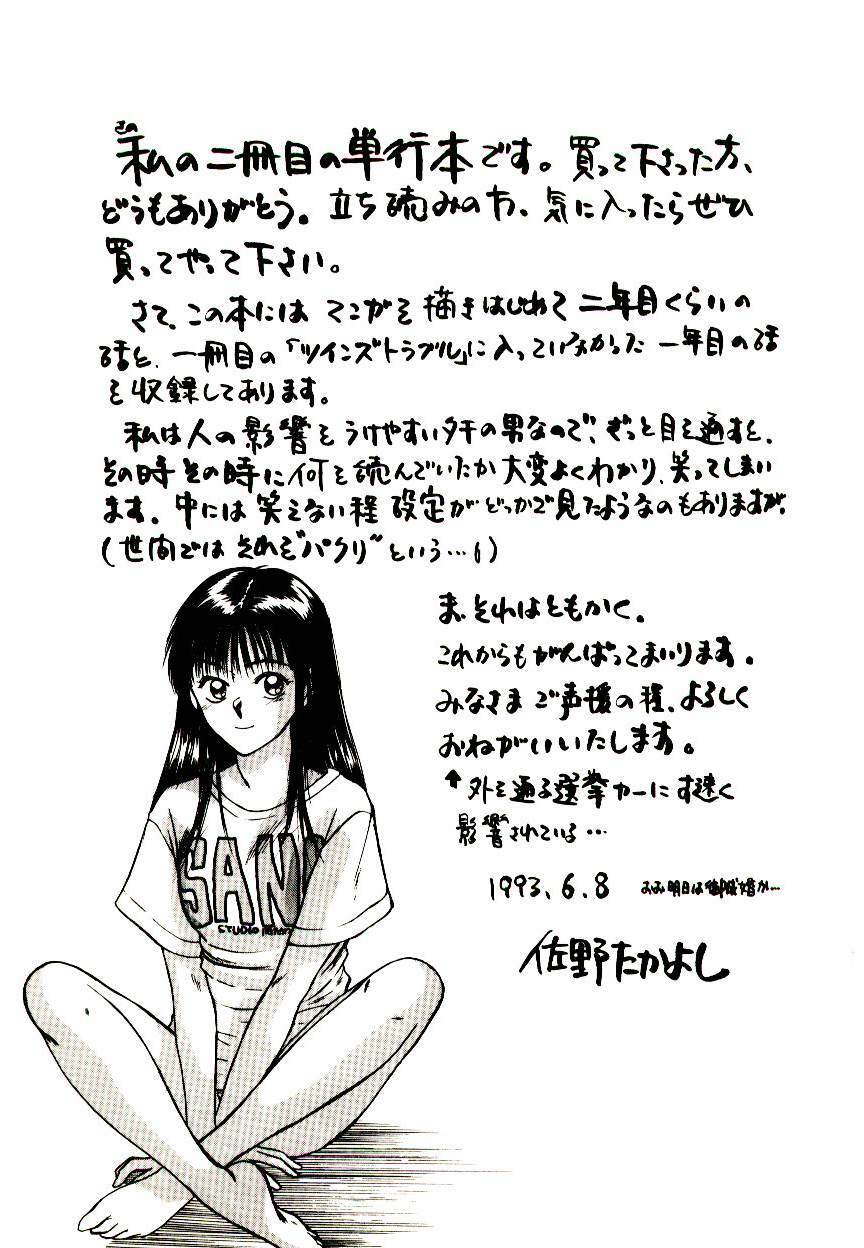 さの
私の二冊目の単行本です。買って下さった方、
どうもありがとう。立ち読みの方、気に入ったらぜひ
買ってやって下さい。
さて、この本にはマンガを描きはじめて二年目くらいの
話と、一冊目の「ツインズトラブル」に入っていなかった一年目の話
を収録してあります。
私は人の影響をうけやすいタチの男なので、ざっと目を通すと、
その時その時に何を読んでいたか大変よくわかり、笑ってしまい
ます。中には笑えない程設定がどっかで見たようなのもありますが、
(世間ではそれを"パクリ"という…。)
ま、それはともかく。
これからもがんばってまいります。
みなさまご声援の程、よろしく
おねがいいたします。
↑外を通る選挙カーにす速く
影響されている…
1993.6.8 おお明日は御成婚か…
佐野たかよし
SAN
STUDIO